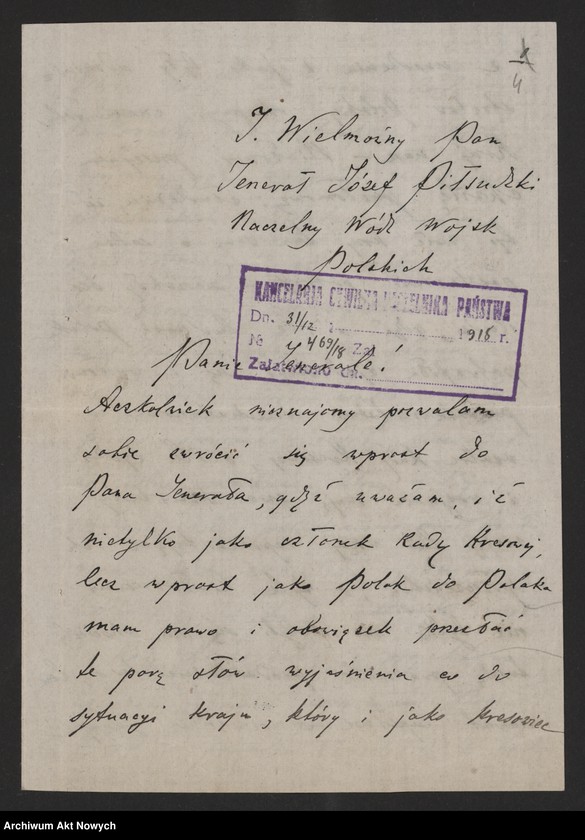 4
J. Wielmożny Pan
Jenerał Józef Piłsudzki
Naczelny Wódz Wojsk
Polskich
KANCELARJA CYWILNA NACZELNIKA PAŃSTWA
Dn. 31/12 1918 r.
№ 469/18 Zał.
Załatwiono dn.
Panie Jenerale!
Aczkolwiek nieznajomy pozwalam
sobie zwrócić się wprost do
Pana Jenerała, gdyż uważam, iż
nietylko jako członek Rady Kresowej,
lecz wprost jako Polak do Polaka
mam prawo i obowiązek przesłać
te parę słów wyjaśnienia co do
sytuacyi kraju, który i jako kresowiec
Archiwum Akt Nowych